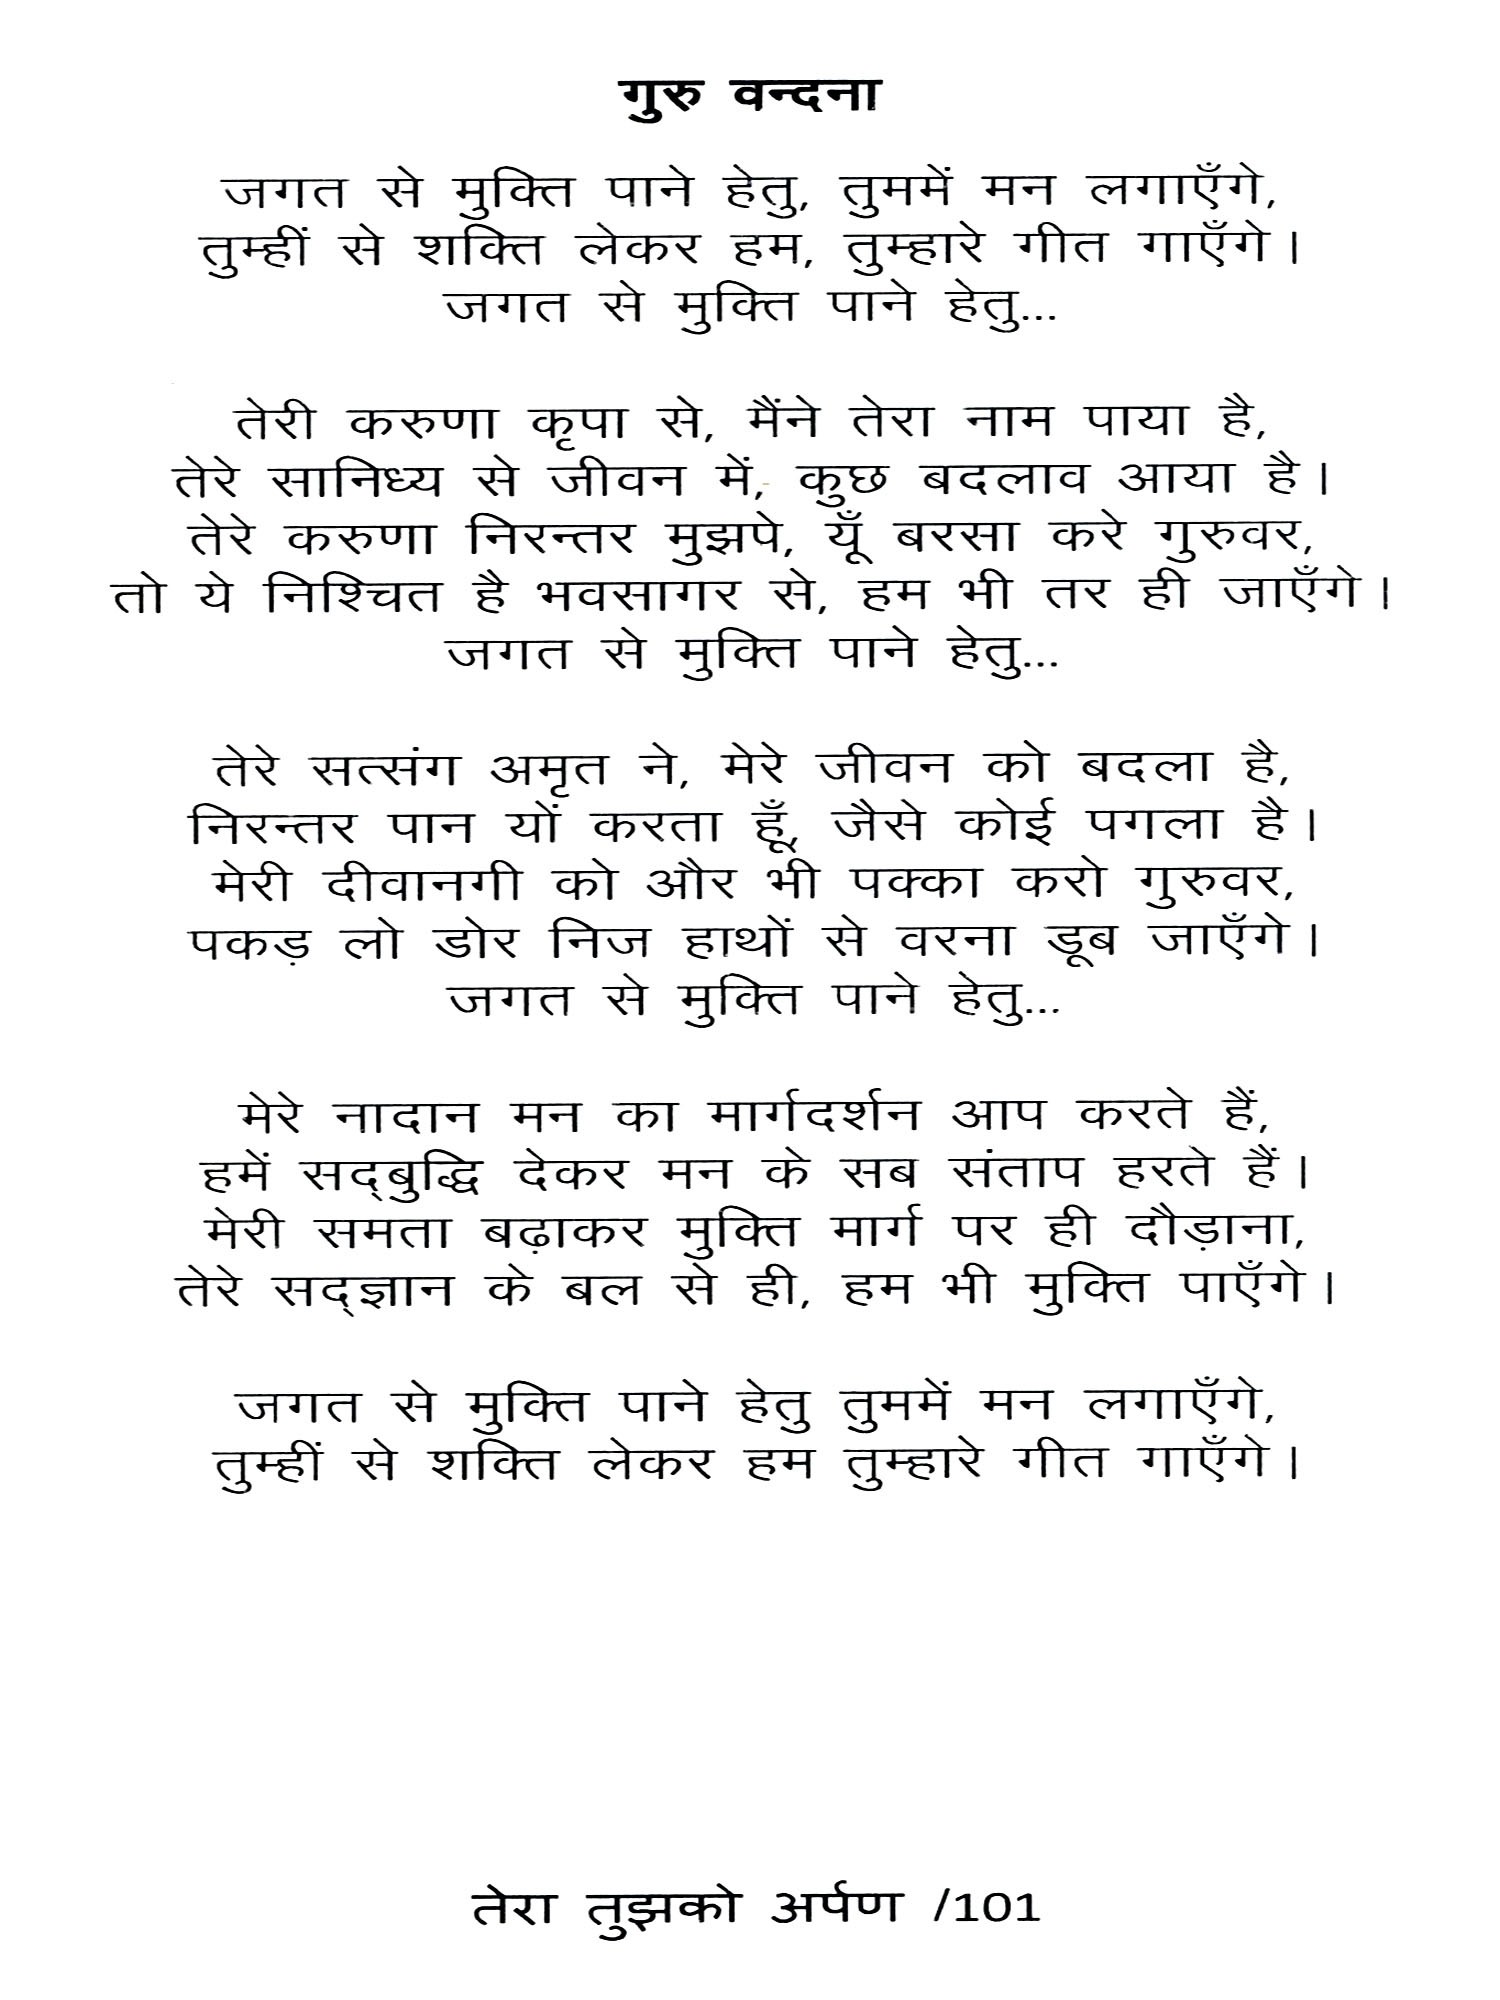 गुरु वन्दना
जगत से मुक्ति पाने हेतु, तुममें मन लगाएँगे,
तुम्हीं से शक्ति लेकर हम, तुम्हारे गीत गाएँगे।
जगत से मुक्ति पाने हेतु...
तेरी करुणा कृपा से, मैंने तेरा नाम पाया है,
तेरे सानिध्य से जीवन में, कुछ बदलाव आया है।
तेरे करुणा निरन्तर मुझपे, यूँ बरसा करे गुरुवर,
तो ये निश्चित है भवसागर से, हम भी तर ही जाएँगे।
जगत से मुक्ति पाने हेतु...
तेरे सत्संग अमृत ने, मेरे जीवन को बदला है,
निरन्तर पान यों करता हूँ, जैसे कोई पगला है।
मेरी दीवानगी को और भी पक्का करो गुरुवर,
पकड़ लो डोर निज हाथों से वरना डूब जाएँगे।
जगत से मुक्ति पाने हेतु...
मेरे नादान मन का मार्गदर्शन आप करते हैं,
हमें सद्‌बुद्धि देकर मन के सब संताप हरते हैं।
मेरी समता बढ़ाकर मुक्ति मार्ग पर ही दौड़ाना,
तेरे सद्‌ज्ञान के बल से ही, हम भी मुक्ति पाएँगे।
जगत से मुक्ति पाने हेतु तुममें मन लगाएँगे,
तुम्हीं से शक्ति लेकर हम तुम्हारे गीत गाएँगे।
तेरा तुझको अर्पण /101